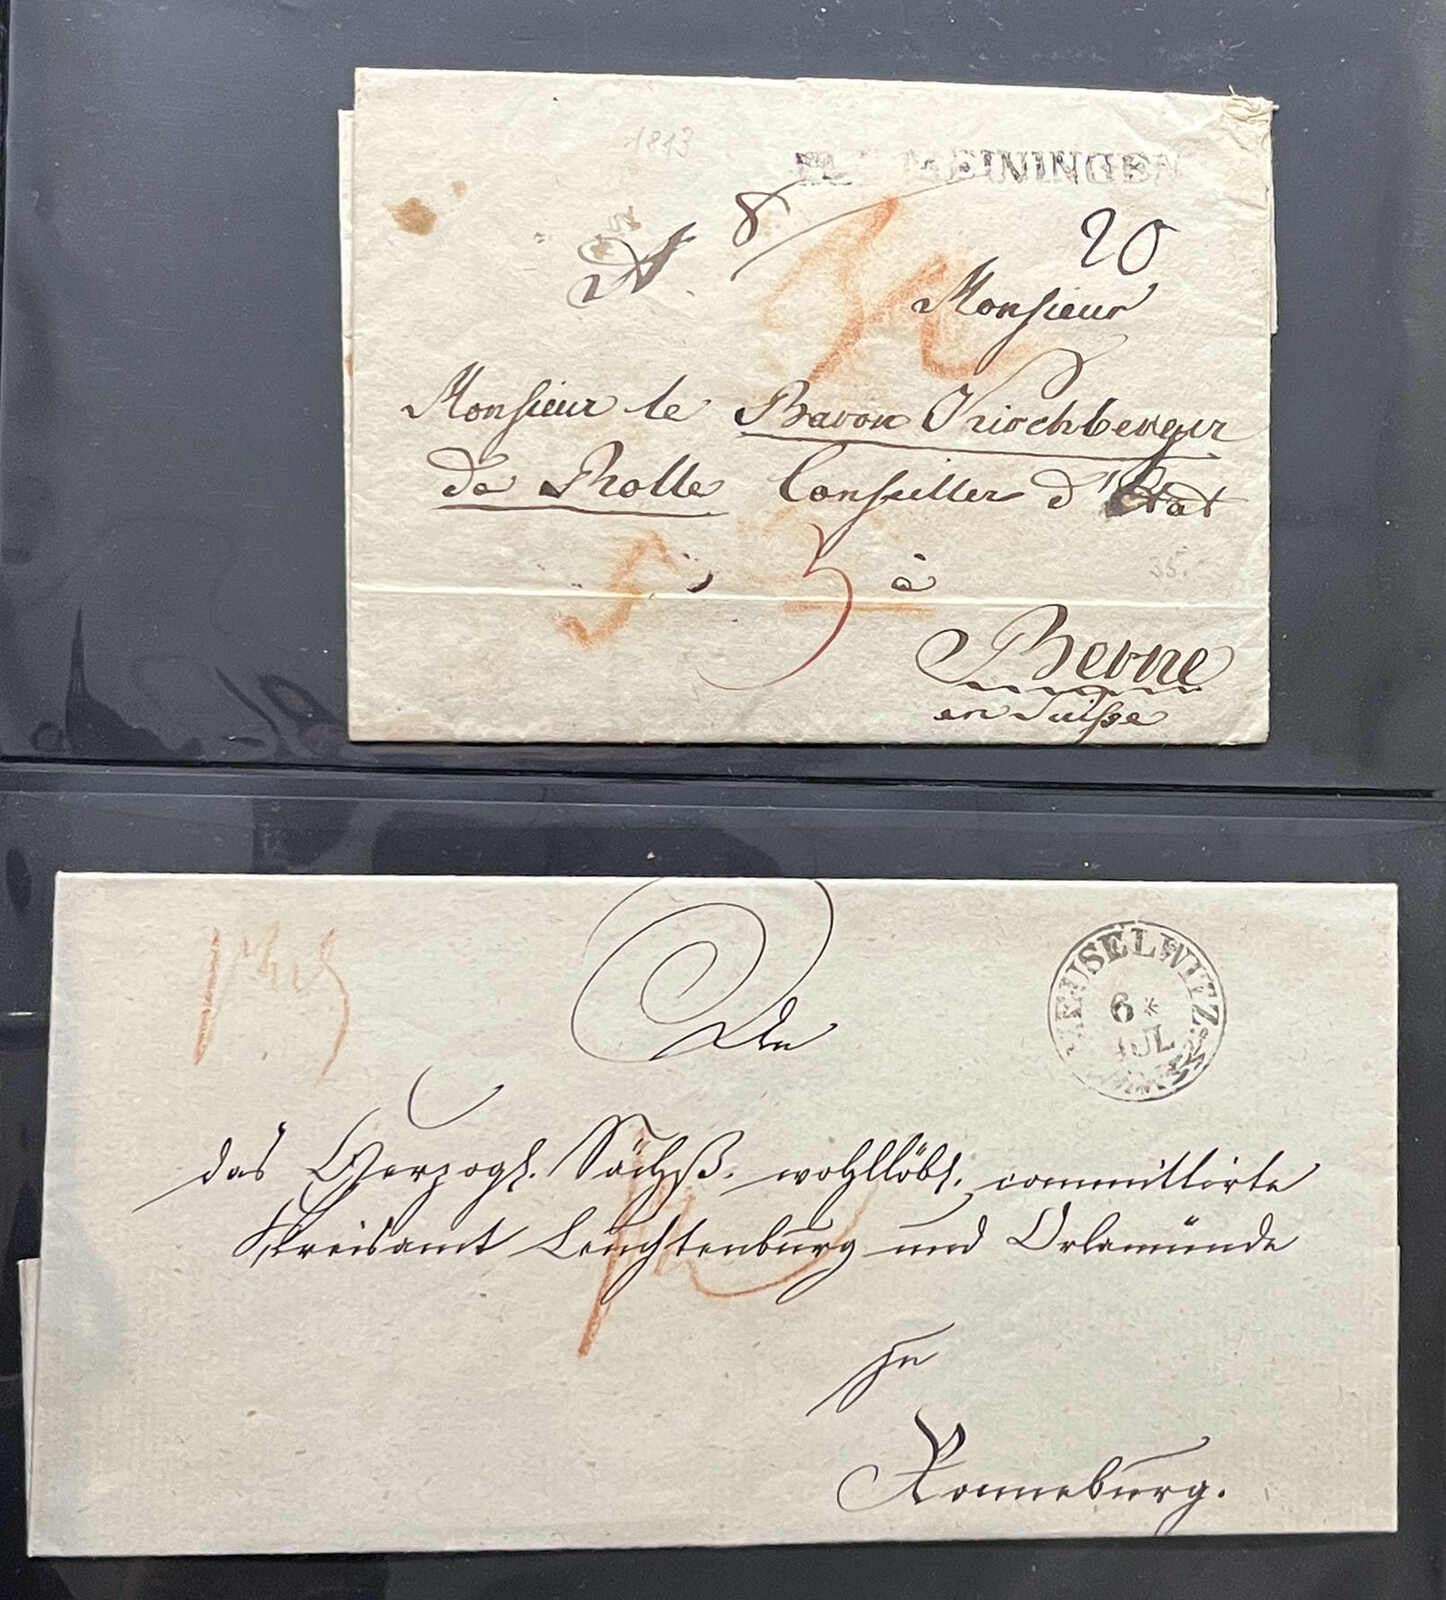 1813
MEININGEN
8
20
Monsieur
Monsieur le Baron Kirchberger
de Rolle Conseiller d'Etat
5 3 à
35.
Berne
en Suisse
MEUSELWITZ.
6 *
JUL
An
das Herzogl. Sächß. wohllöbl. committirte
Kreisamt Leuchtenburg und Orlamünde
zu
Ronneburg.